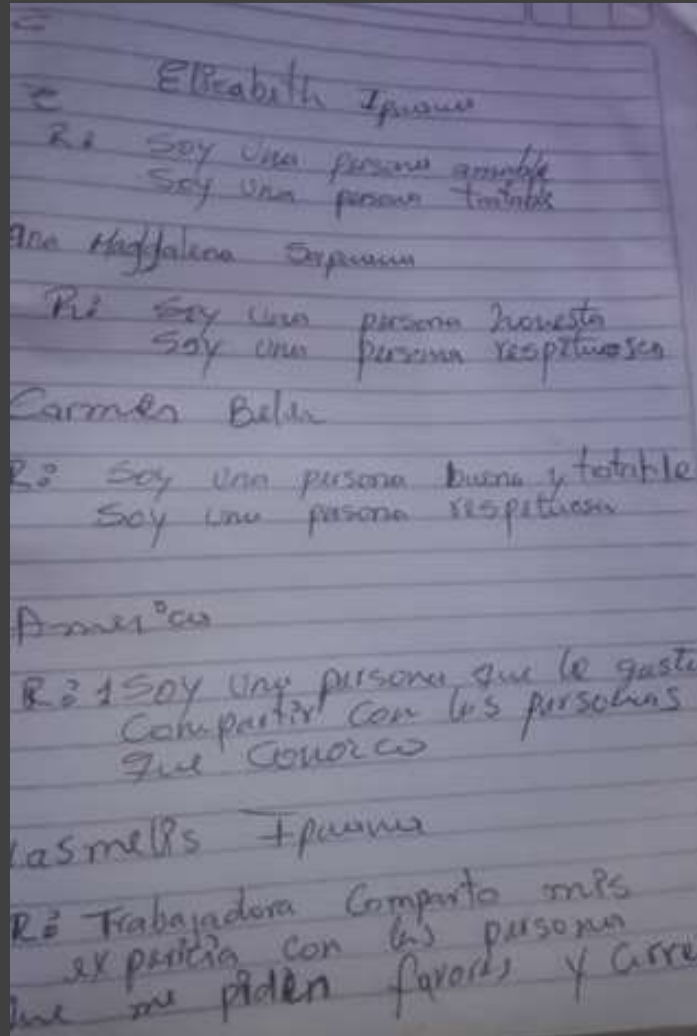 Elizabeth Ipuana
R: Soy una persona amable
Soy una persona tratable
ana Magdalena
R: Soy una persona honesta
Soy una persona respetuosa
Carmen Belen
R: Soy una persona buena y tratable
Soy una pasona respetuosa
America
R: 1 Soy una persona que le gusta
Compartir con las personas
que conozco
Ipuana
R: Trabajadora Comparto mis
expericia con las persona
que me piden favores y